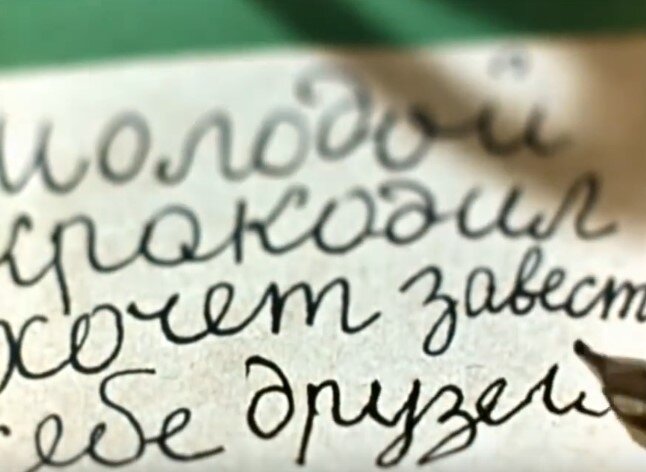 молодой
крокодил
хочет завест
себе друзей